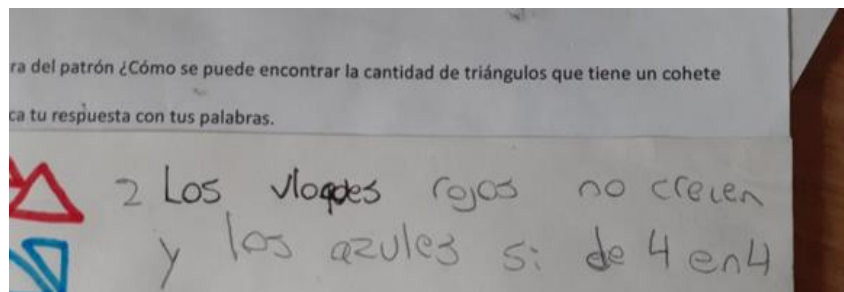 ra del patrón ¿Cómo se puede encontrar la cantidad de triángulos que tiene un cohete
ca tu respuesta con tus palabras.
2 Los vloqdes rojos no crecen
y los azules si de 4 en 4